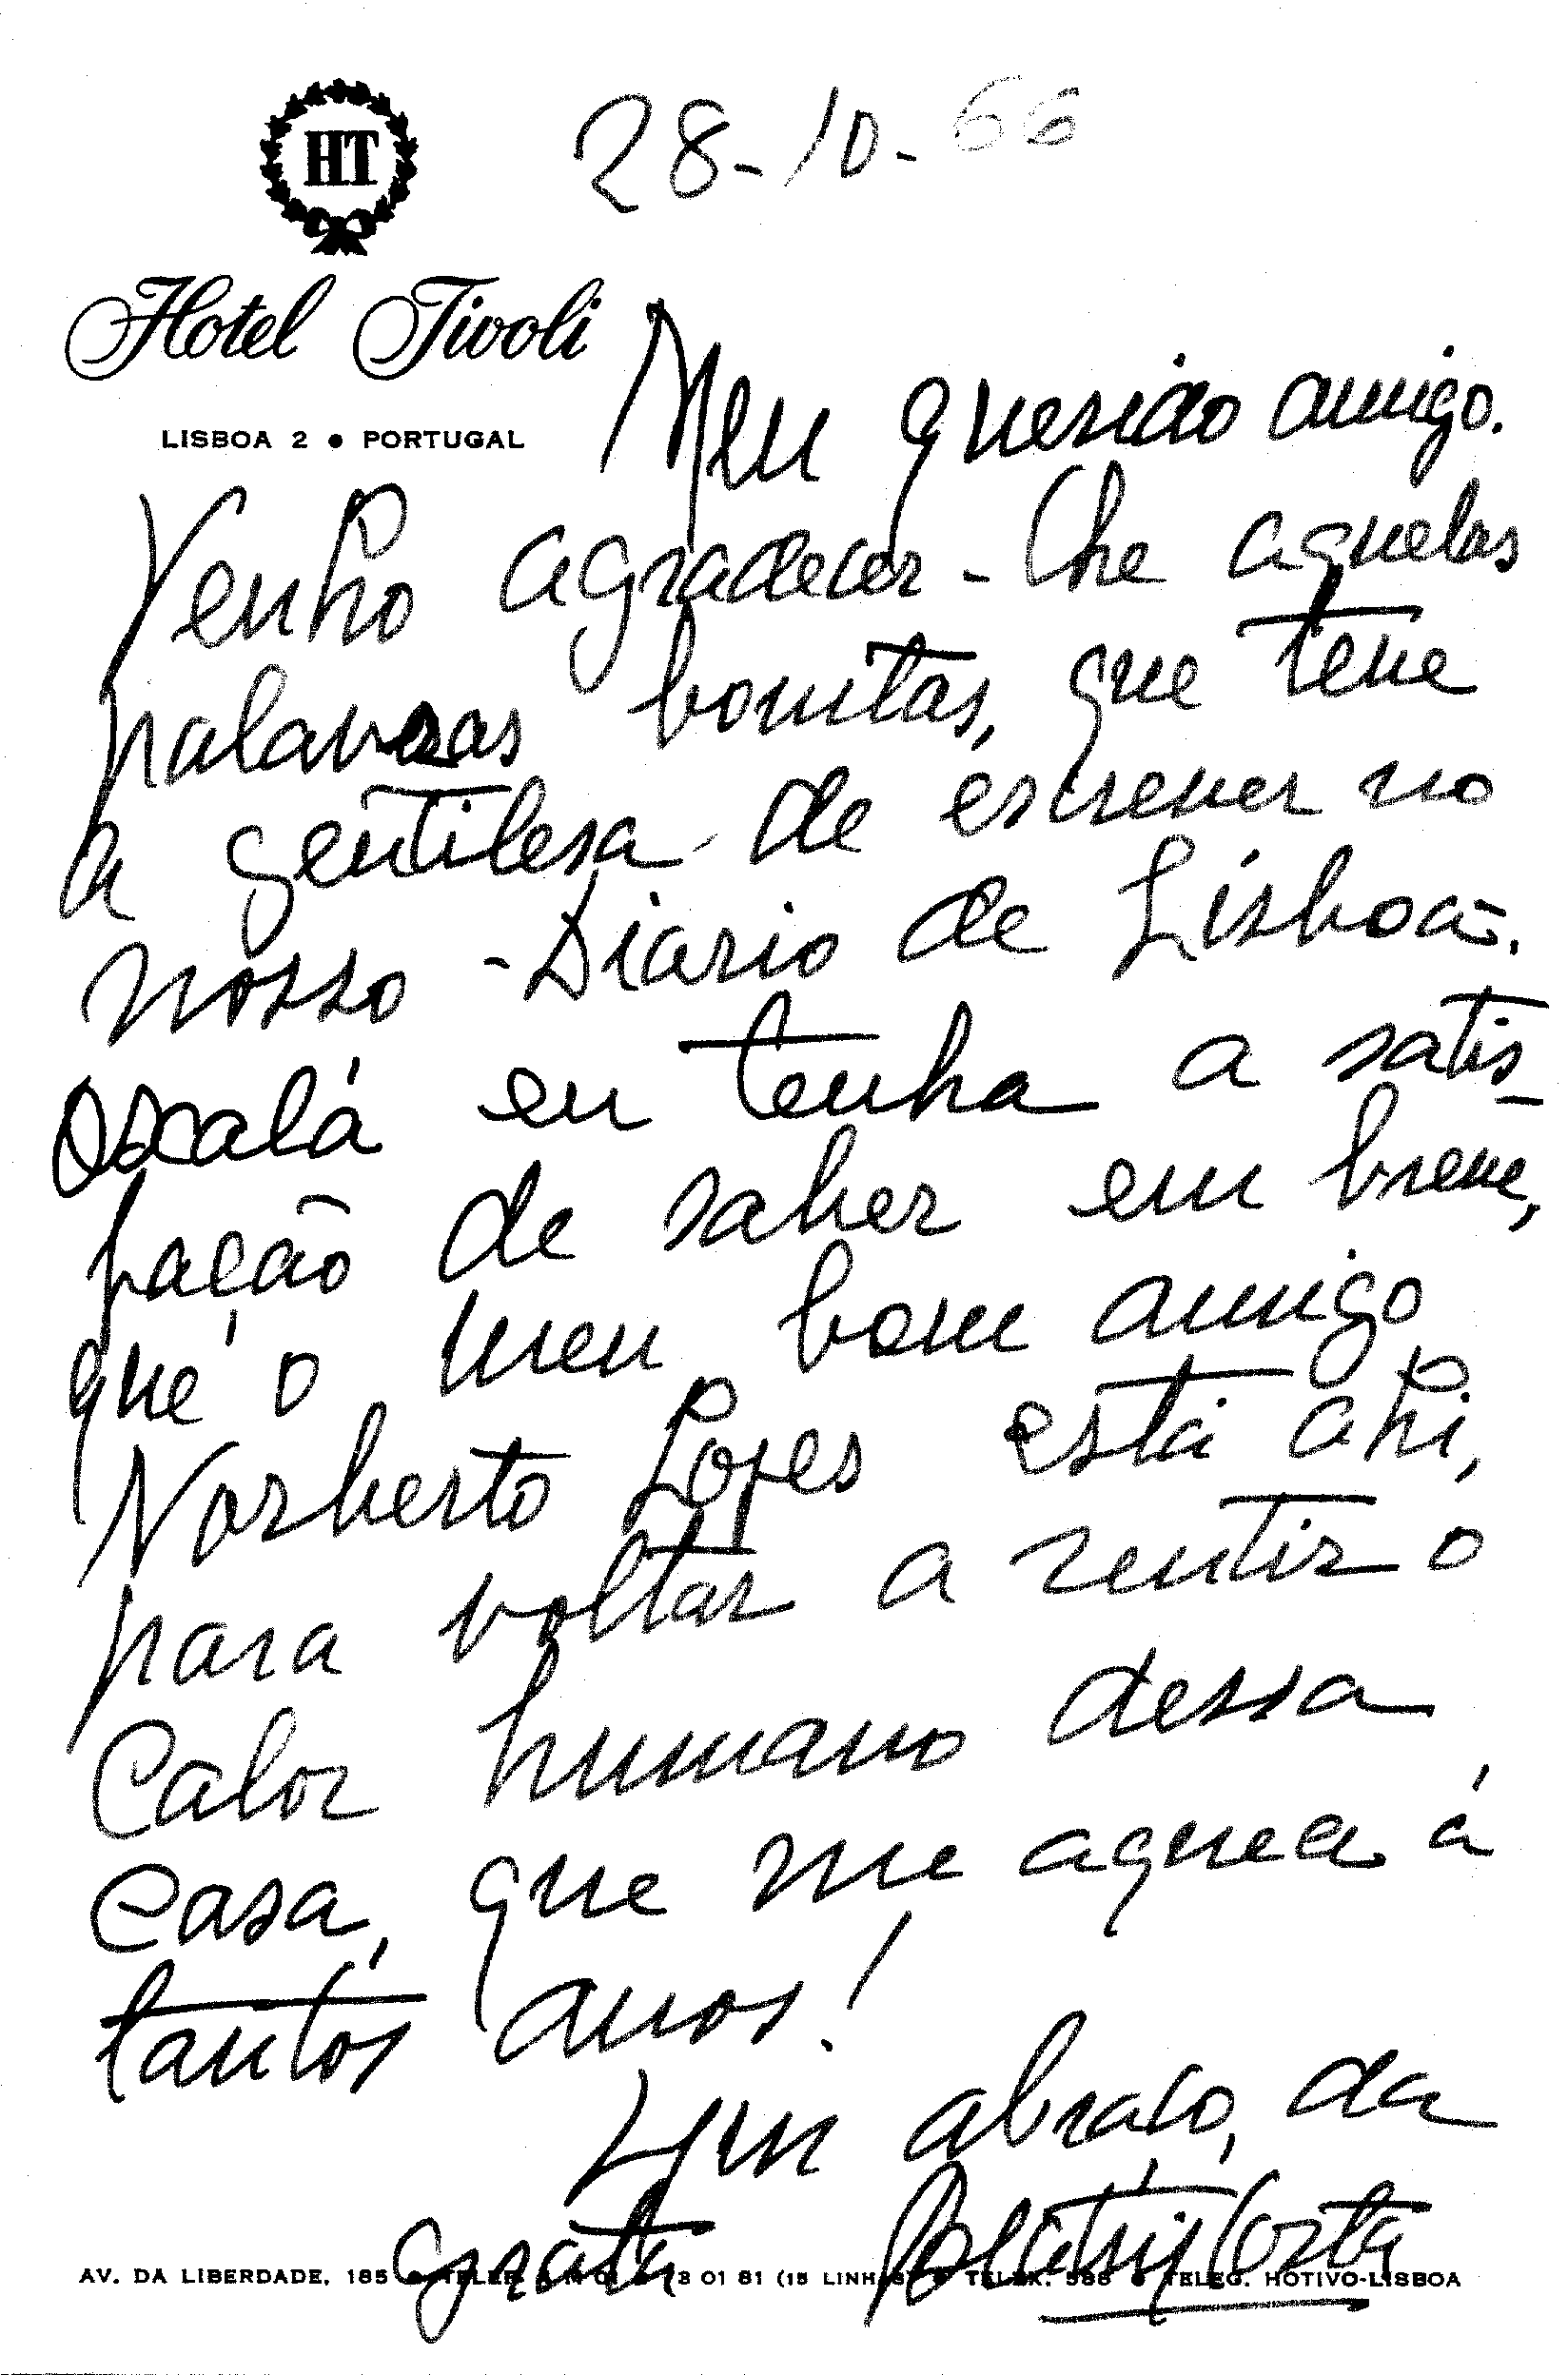 HT
28-10-66
Hotel Tivoli
LISBOA 2 ● PORTUGAL
Meu querido amigo.
Venho agradecer-lhe aquelas
palavras bonitas, que teve
a gentilesa de escrever no
nosso -Diario de Lisboa-.
Oxalá eu tenha a satis-
fação de saber em breve,
que o meu bom amigo
Norberto Lopes está ahi,
para voltar a sentir o
Calor humano dessa
Casa, que me aquece á
tantos anos!
Um abraço, da
grata Beatriz Costa
AV. DA LIBERDADE, 185 ● TELEF. 3 01 81 (15 LINHAS) ● TELEX. 588 ● TELEG. HOTIVO-LISBOA